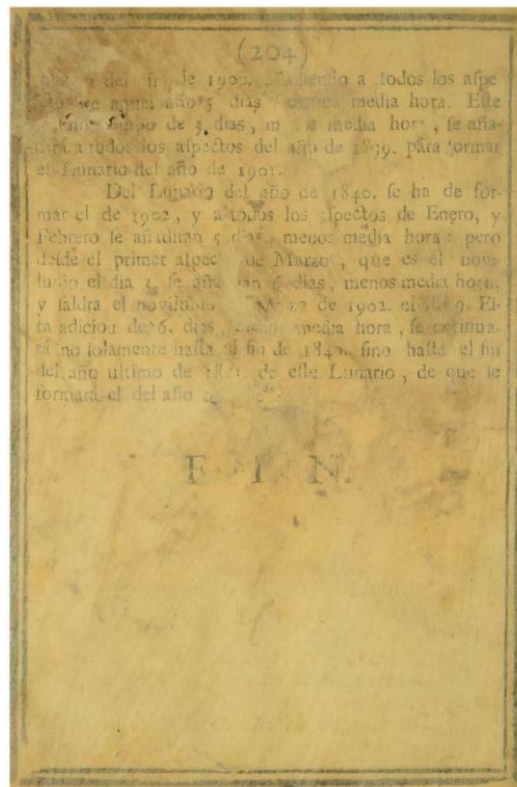 (204)
del de 1900. a todos los aspe
año 5 dias menos media hora. Este
de 5. dias, media hora, se aña
a todos los aspectos del año de 1839. para formar
el Lunario del año de 1901.
Del Lunario del año de 1840. se ha de for-
mar el de 1902, y a todos los aspectos de Enero, y
Febrero se añadiran 5 dias, menos media hora: pero
desde el primer aspecto de Marzo, que es el novi
lunio el dia 3. se 6. dias, menos media hora,
y saldra el novilunio Marzo de 1902. el 9. Es-
ta adiciou de 6. dias, menos media hora, se
rá no solamente hasta el fin de 1840. sino hasta el fin
del año ultimo de de este Lunario, de que se
formará el del año
F I N.